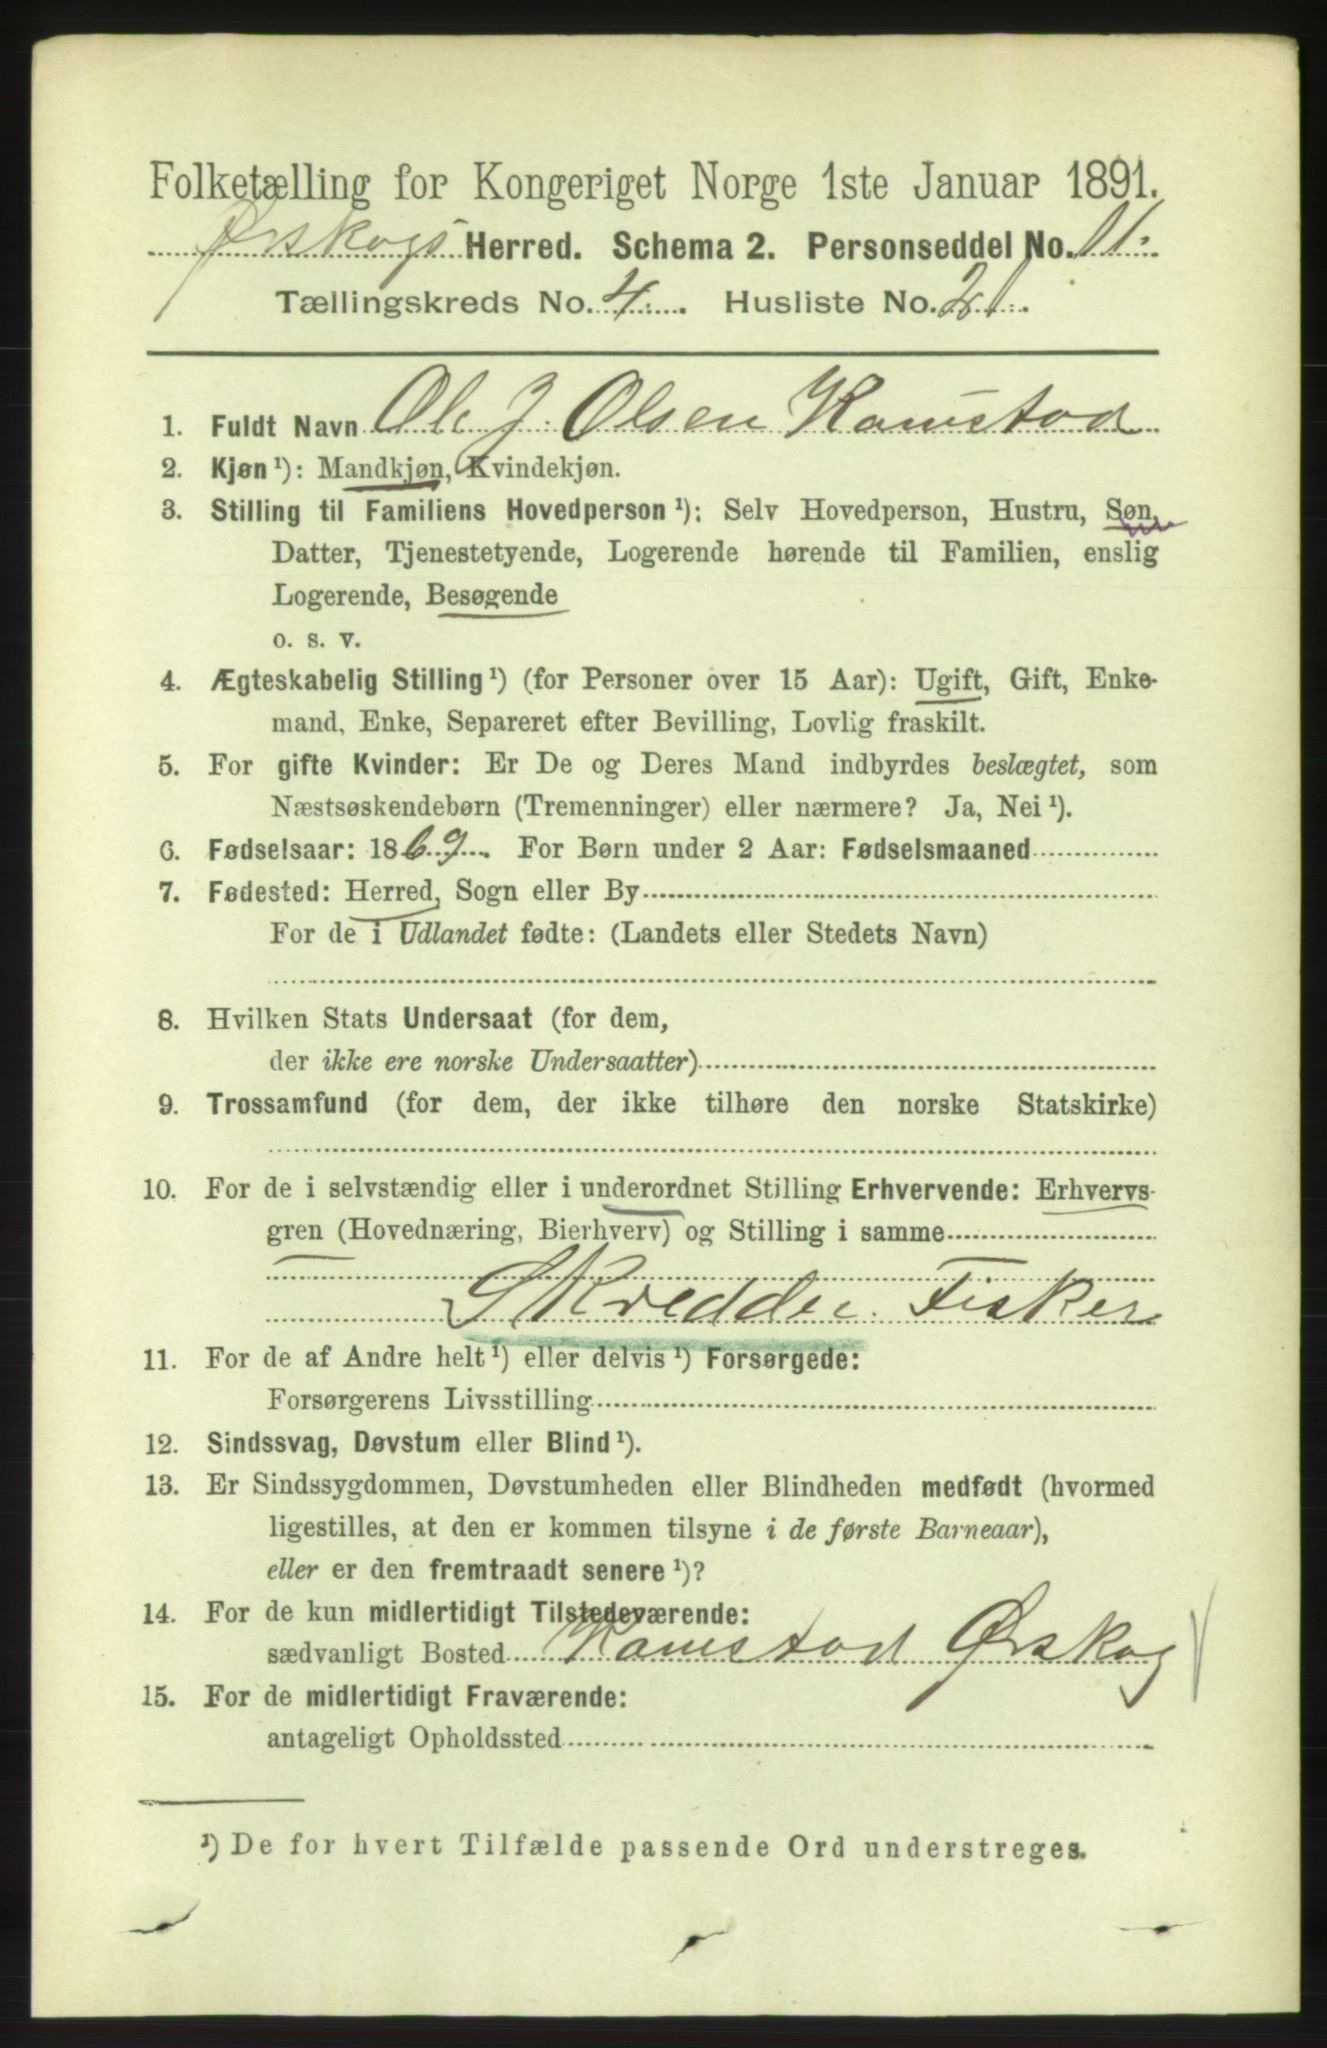 Folketælling for Kongeriget Norge 1ste Januar 1891.
Ørskogs Herred. Schema 2. Personseddel No. 11.
Tællingskreds No. 4. Husliste No. 21.
1. Fuldt Navn Ole J. Olsen Hamstad
2. Kjøn ¹): Mandkjøn, Kvindekjøn.
3. Stilling til Familiens Hovedperson ¹): Selv Hovedperson, Hustru, Søn,
Datter, Tjenestetyende, Logerende hørende til Familien, enslig
Logerende, Besøgende
o. s. v.
4. Ægteskabelig Stilling ¹) (for Personer over 15 Aar): Ugift, Gift, Enke-
mand, Enke, Separeret efter Bevilling, Lovlig fraskilt.
5. For gifte Kvinder: Er De og Deres Mand indbyrdes beslægtet, som
Næstsøskendebørn (Tremenninger) eller nærmere? Ja, Nei ¹).
6. Fødselsaar: 1869. For Børn under 2 Aar: Fødselsmaaned
7. Fødested: Herred, Sogn eller By
For de i Udlandet fødte: (Landets eller Stedets Navn)
8. Hvilken Stats Undersaat (for dem,
der ikke ere norske Undersaatter)
9. Trossamfund (for dem, der ikke tilhøre den norske Statskirke)
10. For de i selvstændig eller i underordnet Stilling Erhvervende: Erhvervs-
gren (Hovednæring, Bierhverv) og Stilling i samme
Skredder Fisker
11. For de af Andre helt ¹) eller delvis ¹) Forsørgede:
Forsørgerens Livsstilling
12. Sindssvag, Døvstum eller Blind ¹).
13. Er Sindssygdommen, Døvstumheden eller Blindheden medfødt (hvormed
ligestilles, at den er kommen tilsyne i de første Barneaar),
eller er den fremtraadt senere ¹)?
14. For de kun midlertidigt Tilstedeværende:
sædvanligt Bosted Hamstad Ørskog
15. For de midlertidigt Fraværende:
antageligt Opholdssted
¹) De for hvert Tilfælde passende Ord understreges.